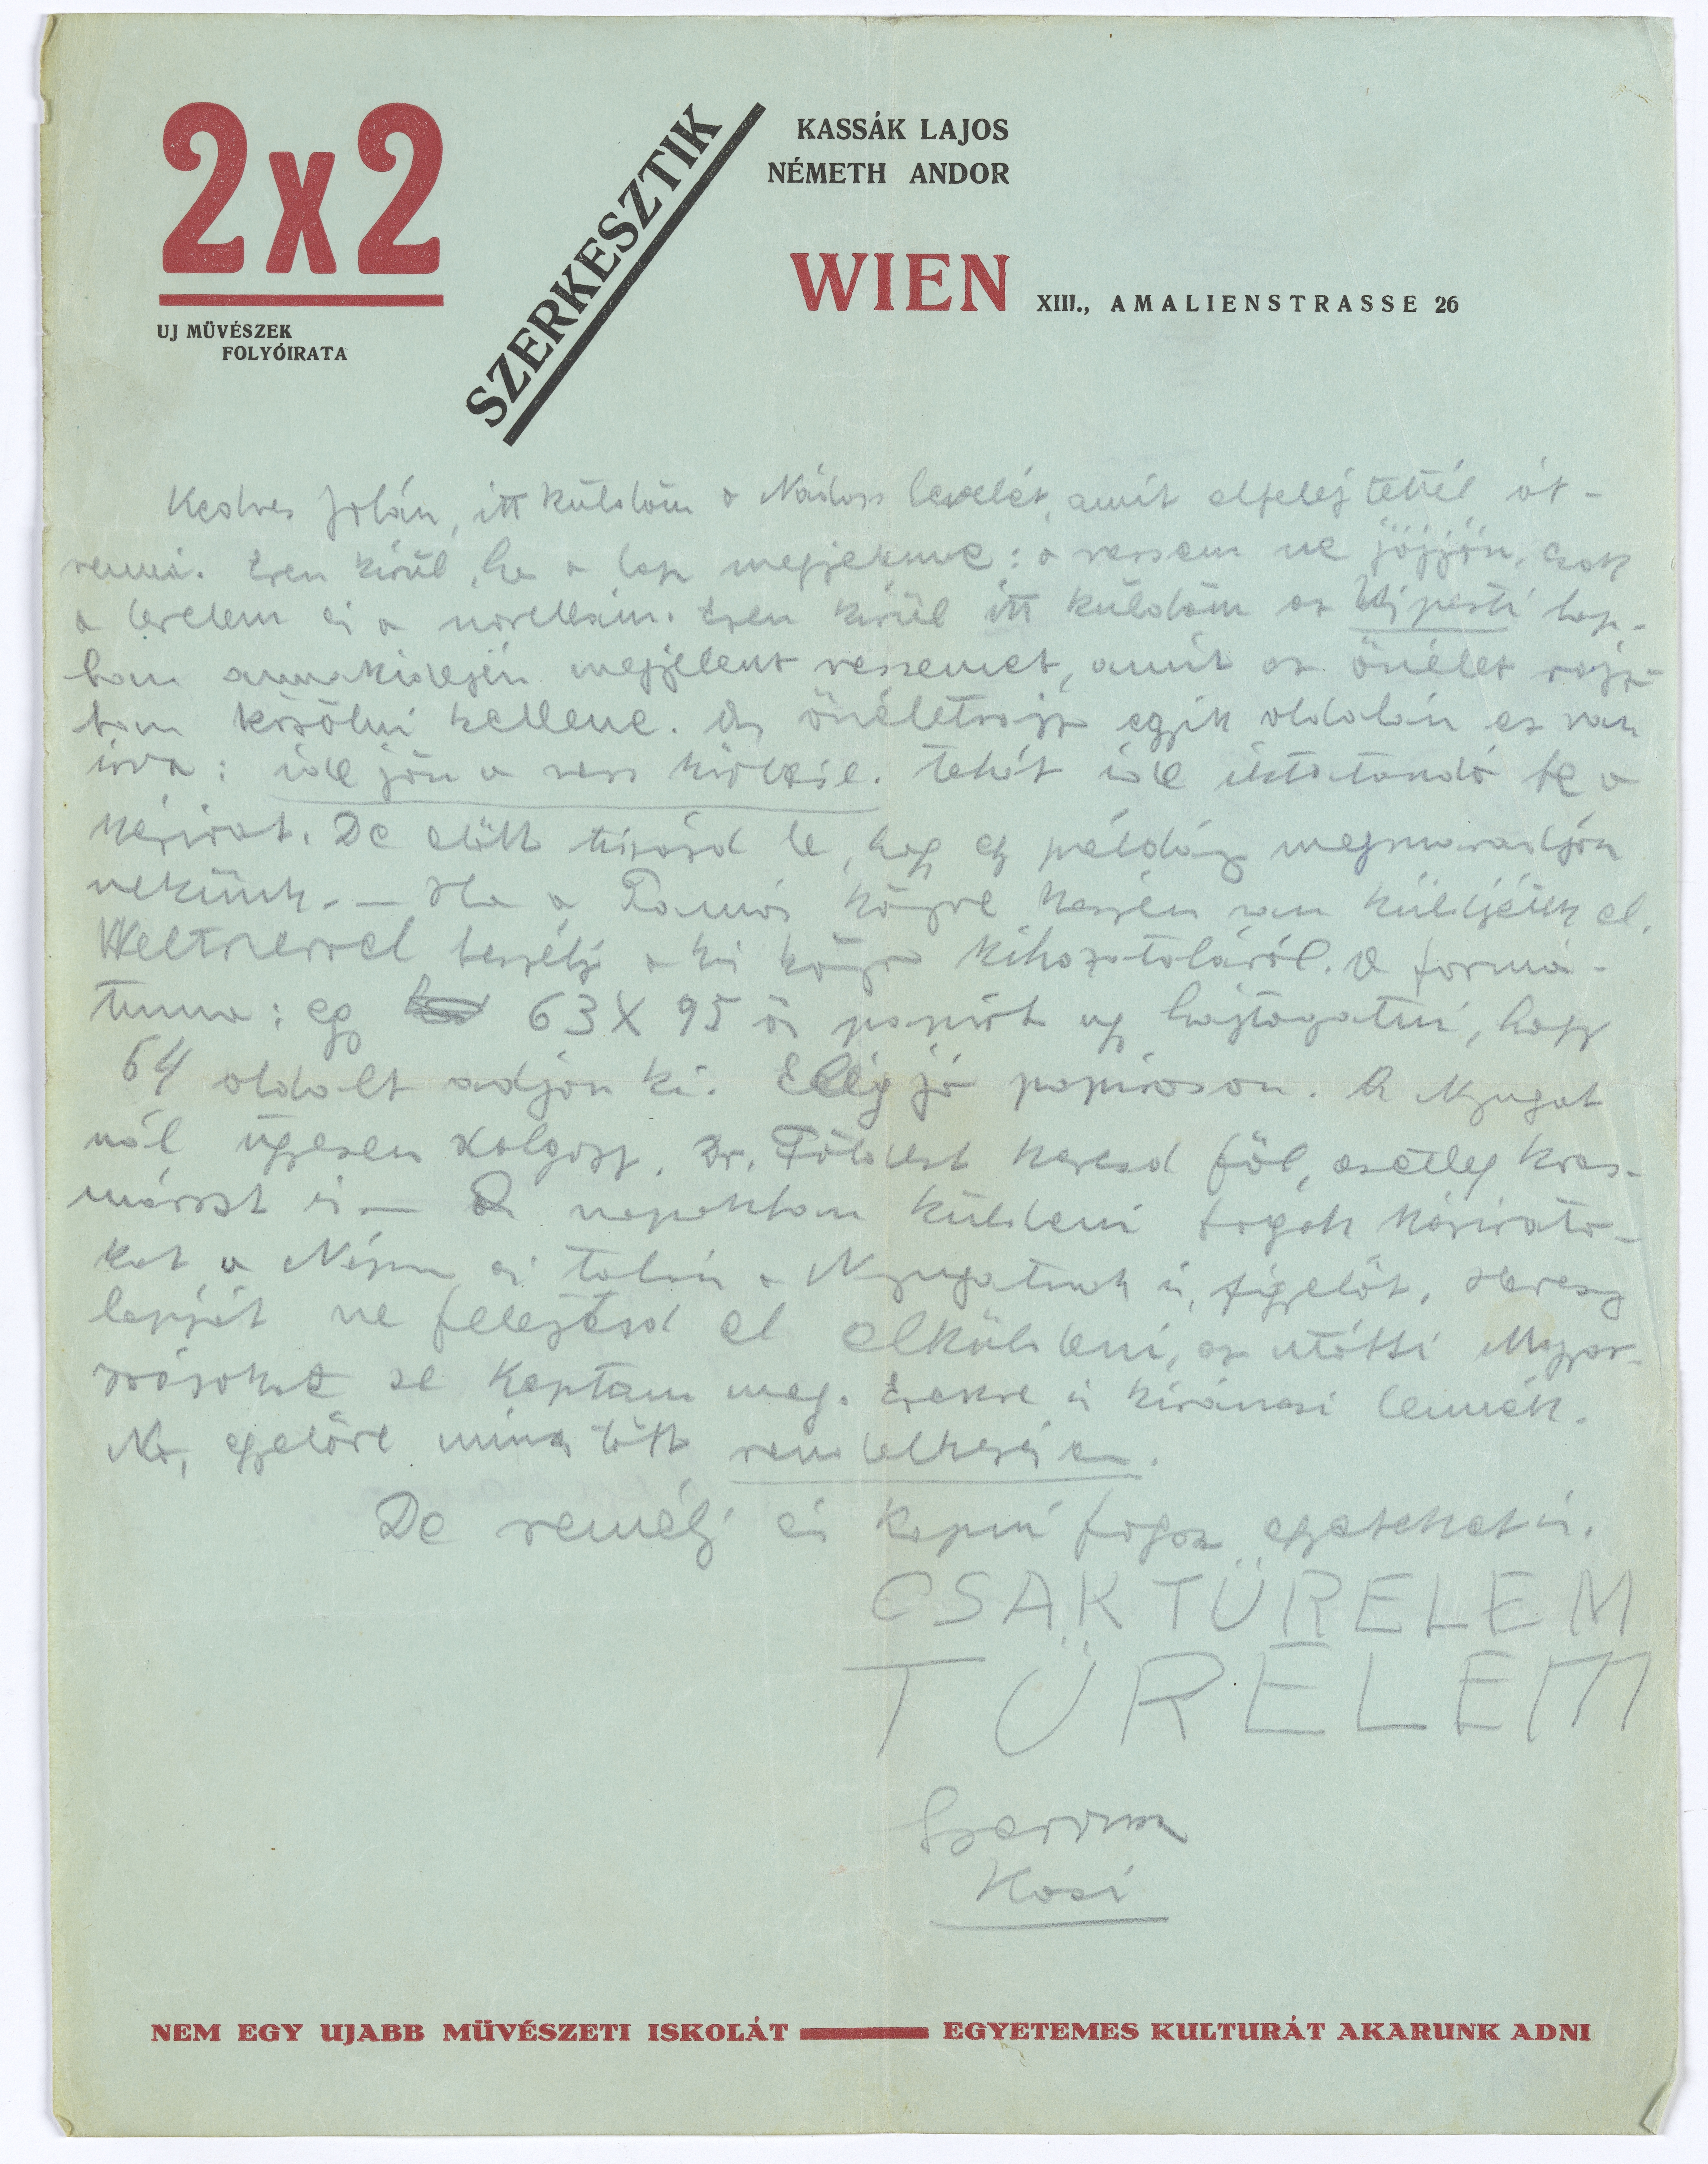 2x2
UJ MÜVÉSZEK
FOLYÓIRATA
SZERKESZTIK
KASSÁK LAJOS
NÉMETH ANDOR
WIEN XIII., AMALIENSTRASSE 26
Kedves Jolán, itt küldöm a Nádass levelét, amit elfelejtettél át-
venni. Ezen kivül, ha a lap megjelenne: a versem ne jöjjön, csak
a levelem és a novellám. Ezen kivül itt küldöm az Ujpesti lap-
ban annakidején megjelent versemet, amit az önélet rajz-
ban közölni kellene. Az önéletrajz egyik oldalán ez van
irva: ide jön a vers közlése. Tehát ide iktatandó be a
kézirat. De előtt tisztázd le, hogy egy példány megmaradjon
nekünk. — Ha a Tamás könyve készen van küldjétek el.
Weltnerrel beszélj a kis könyv kihozataláról. A formá-
tuma: egy 63X95 ös papirt ugy hajtogatni, hogy
64 oldalt adjon ki. Elég jó papiroson. A Nyugat
nál ügyesen dolgozz. Dr. Földest keresd föl, esetleg
is — A napokban küldeni fogok kézirato-
kat, a Népsz. és talán a Nyugatnak is, figyelőt.
lapját ne felejtsd el elküldeni, az utóbbi Magyar-
országokat se kaptam meg. Ezekre is kiváncsi lennék.
No, egyelőre minden
De remélj és kapni fogsz egyebeket is.
CSAK TÜRELEM
TÜRELEM
Szervusz
Kasi
NEM EGY UJABB MÜVÉSZETI ISKOLÁT — EGYETEMES KULTURÁT AKARUNK ADNI